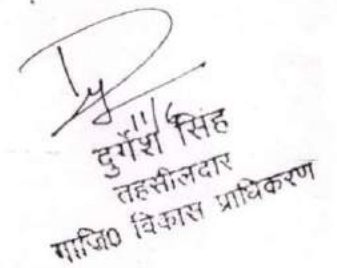 11/6
दुर्गेश सिंह
तहसीलदार
गाजि0 विकास प्राधिकरण